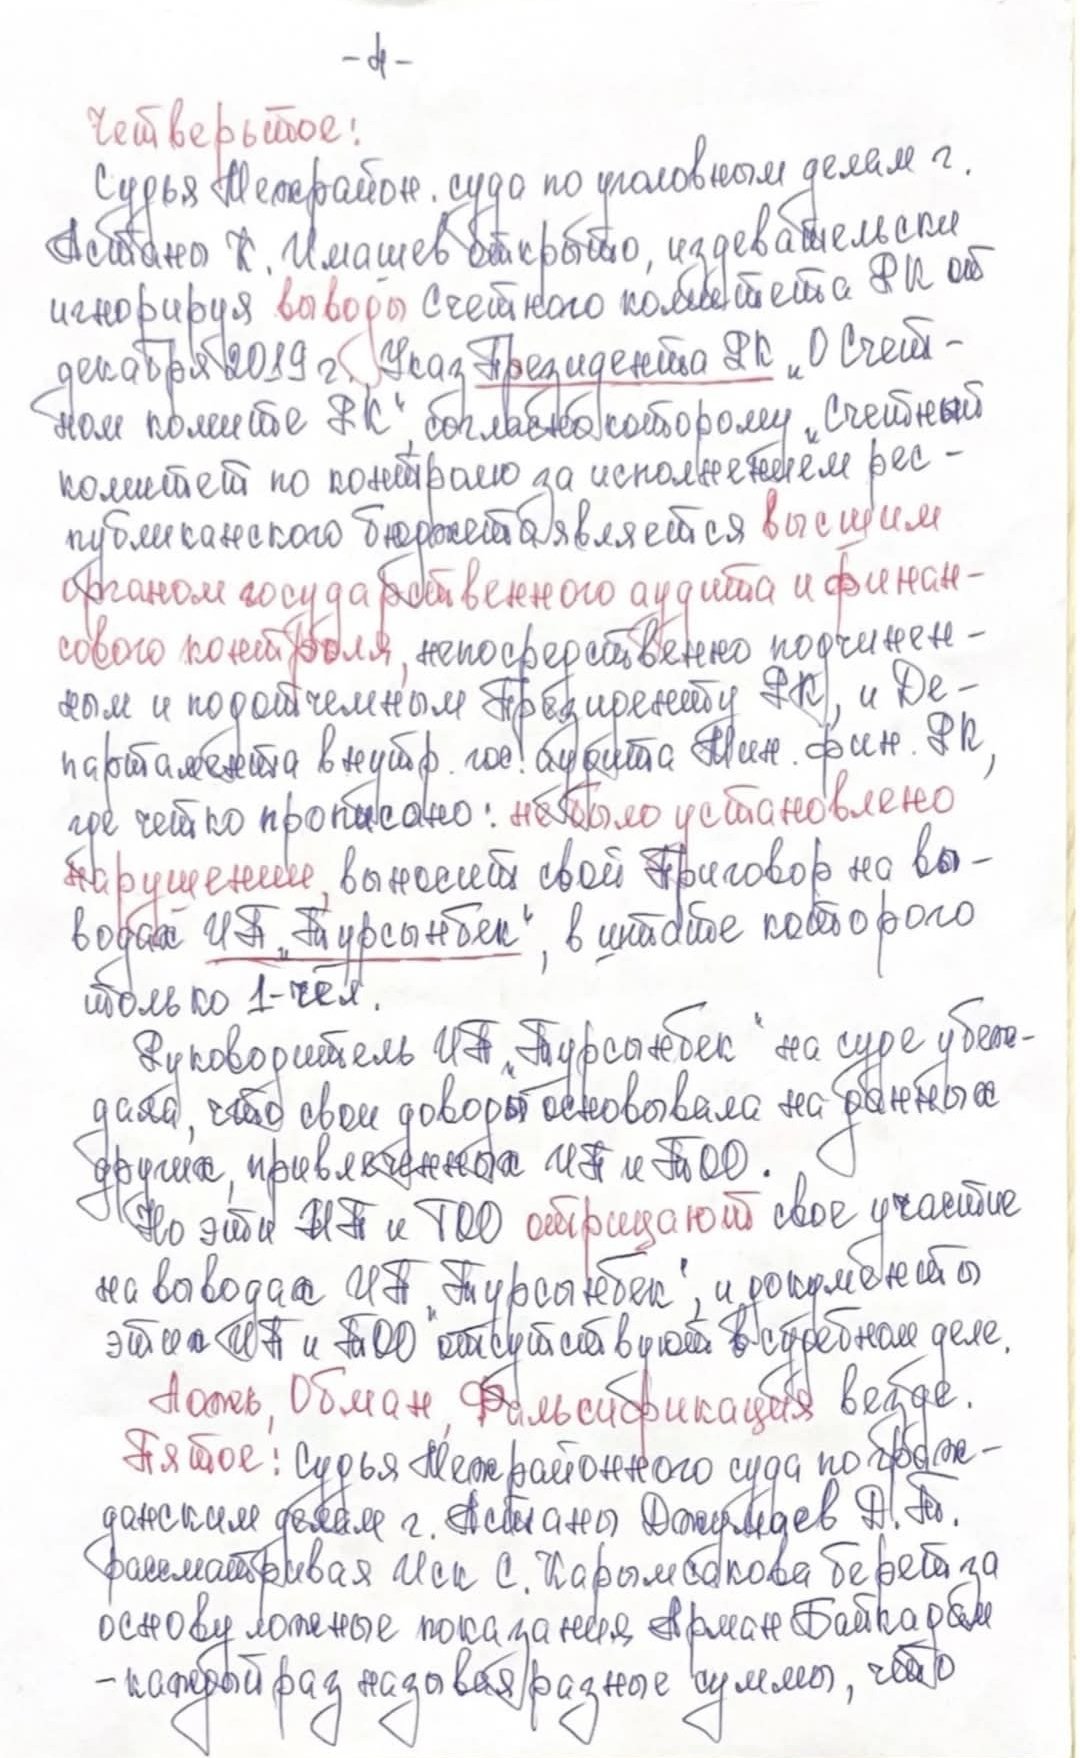 -4-
Четвертое:
Судья Межрайон. суда по уголовным делам г.
Астаны К. Имашев открыто, издевательски
игнорируя выводы Счетного комитета РК от
декабря 2019 г., Указ Президента РК „О Счет-
ном комите РК", согласно которому „Счетный
комитет по контролю за исполнением рес-
публиканского бюджета является высшим
органом государственного аудита и финан-
сового контроля, непосредственно подчинен-
ным и подотчетным Президенту РК, и Де-
партамента внутр. гос. аудита Мин. фин. РК,
где четко прописано: не было установлено
нарушении, выносит свой Приговор на вы-
водах ИП „Турсынбек", в штате которого
только 1-чел.
Руководитель ИП „Турсынбек" на суде убеж-
дала, что свои доводы основывала на данных
других, привлеченных ИП и ТОО.
Но эти ИП и ТОО отрицают свое участие
на выводах ИП „Турсынбек", и документы
этих ИП и ТОО отсутствуют в судебном деле.
Ложь, Обман, Фальсификация везде.
Пятое: Судья Межрайонного суда по граж-
данским делам г. Астаны Джумаев Д.Т.
рассматривая Иск С. Карымсакова берет за
основу ложные показания Арман Байкадам
-каждый раз называя разные суммы, что